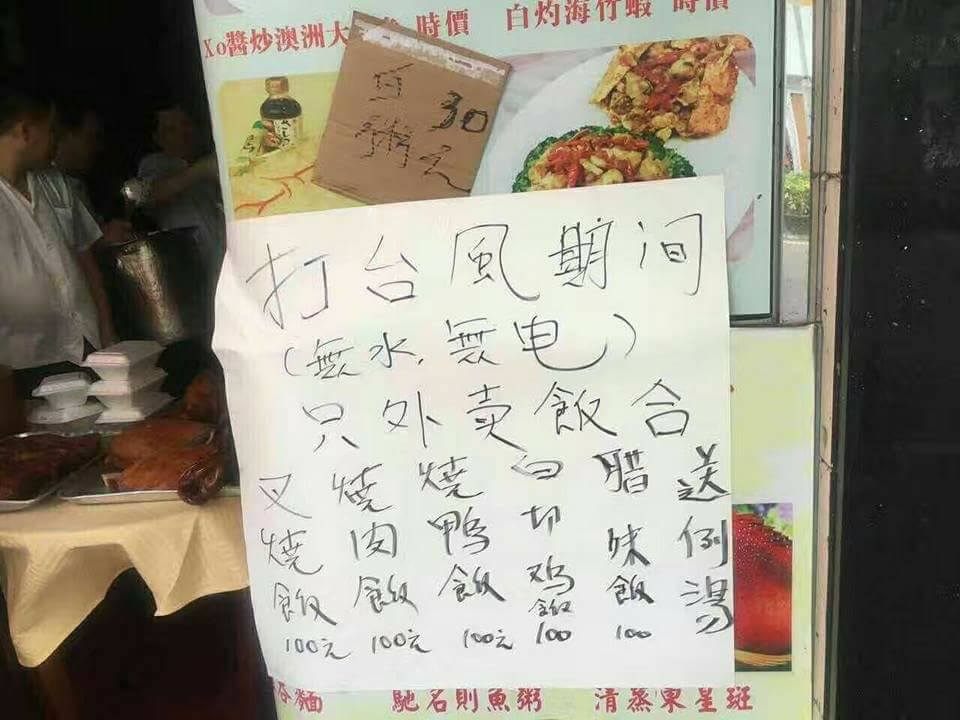 Xo醬炒澳洲大 時價 白灼海竹蝦 時價
白粥 30元
打台風期间
(無水.無电)
只外卖飯合
叉燒飯 100元
燒肉飯 100元
燒鴨飯 100元
白切鸡飯 100
腊味飯 100
送例湯
吞麵 馳名則魚粥 清蒸東星斑